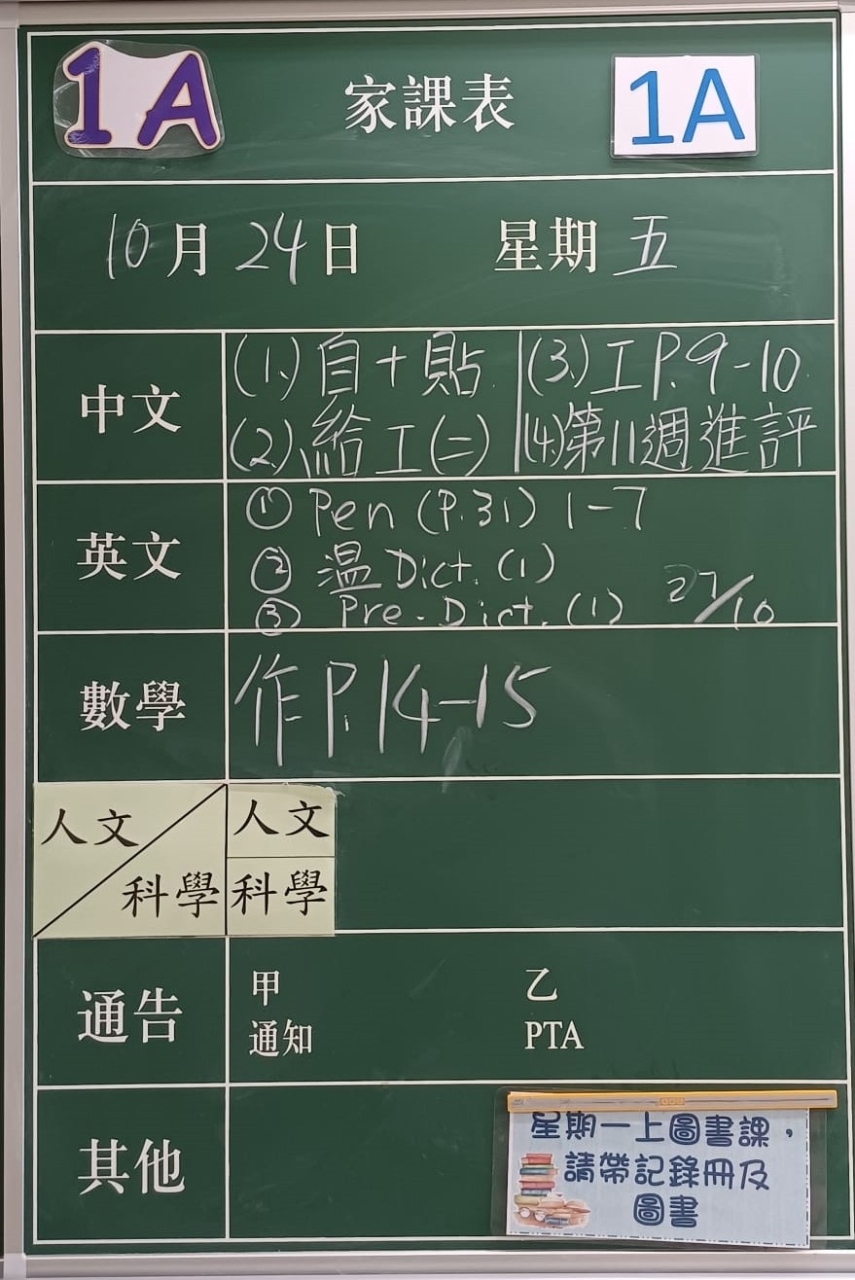 1A 家課表 1A
10月24日 星期五
中文
(1.) 自+貼 (3.) 工P.9-10
(2.) 給工(二) (4.) 第11週進評
英文
① Pen (P.31) 1-7
② 溫 Dict. (1)
③ Pre-Dict. (1) 27/10
數學 作P.14-15
人文/科學 人文
科學
通告
甲 乙
通知 PTA
其他
星期一上圖書課，
請帶記錄冊及
圖書